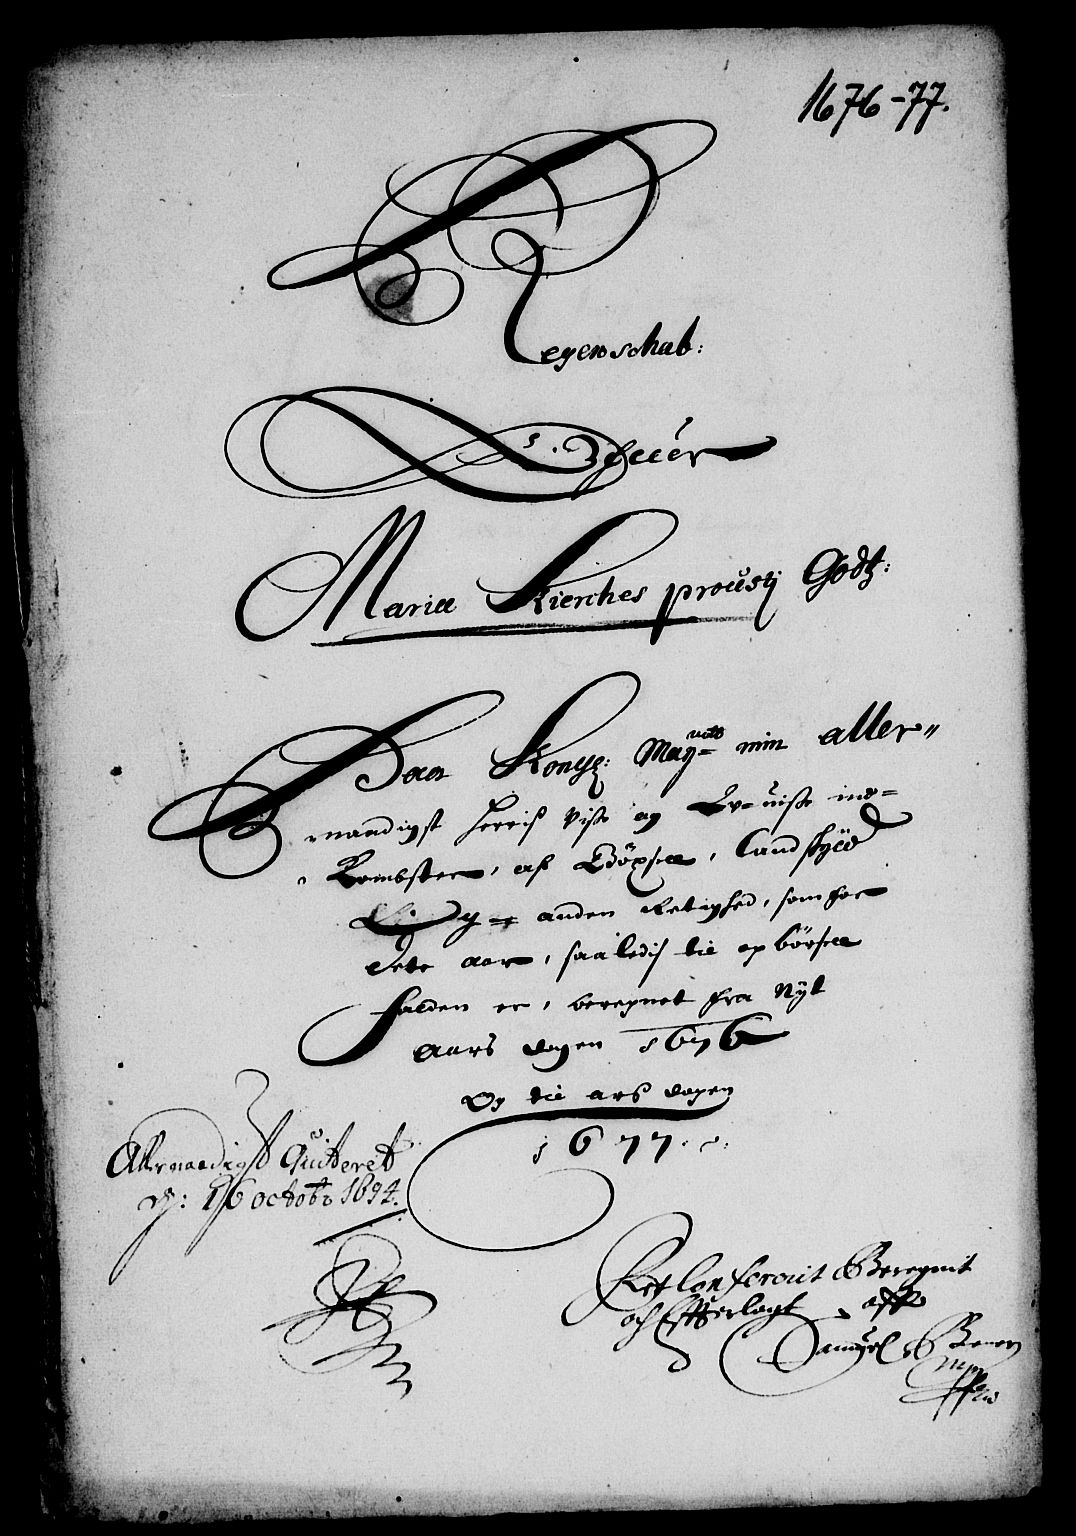 1676-77.
Regenschab:
Offuer
Mariæ Kierches proustj Godtz:
Paa Kongl: Mayts min aller-
naadigst herris Visse og Uvisse ind-
Kombster, af Bøxsel, Landskyld
og anden Retighed, som for
dete aar, saaledis til opbørsel
falden er, beregnet fra Nyt
aars dagen 1676
Og til ars dagen
1677.
Allernaadigst Quiteret
d: 16 octobr 1694.
Ret Conferorit Beregnit
och Efterlagt aff
Samuel